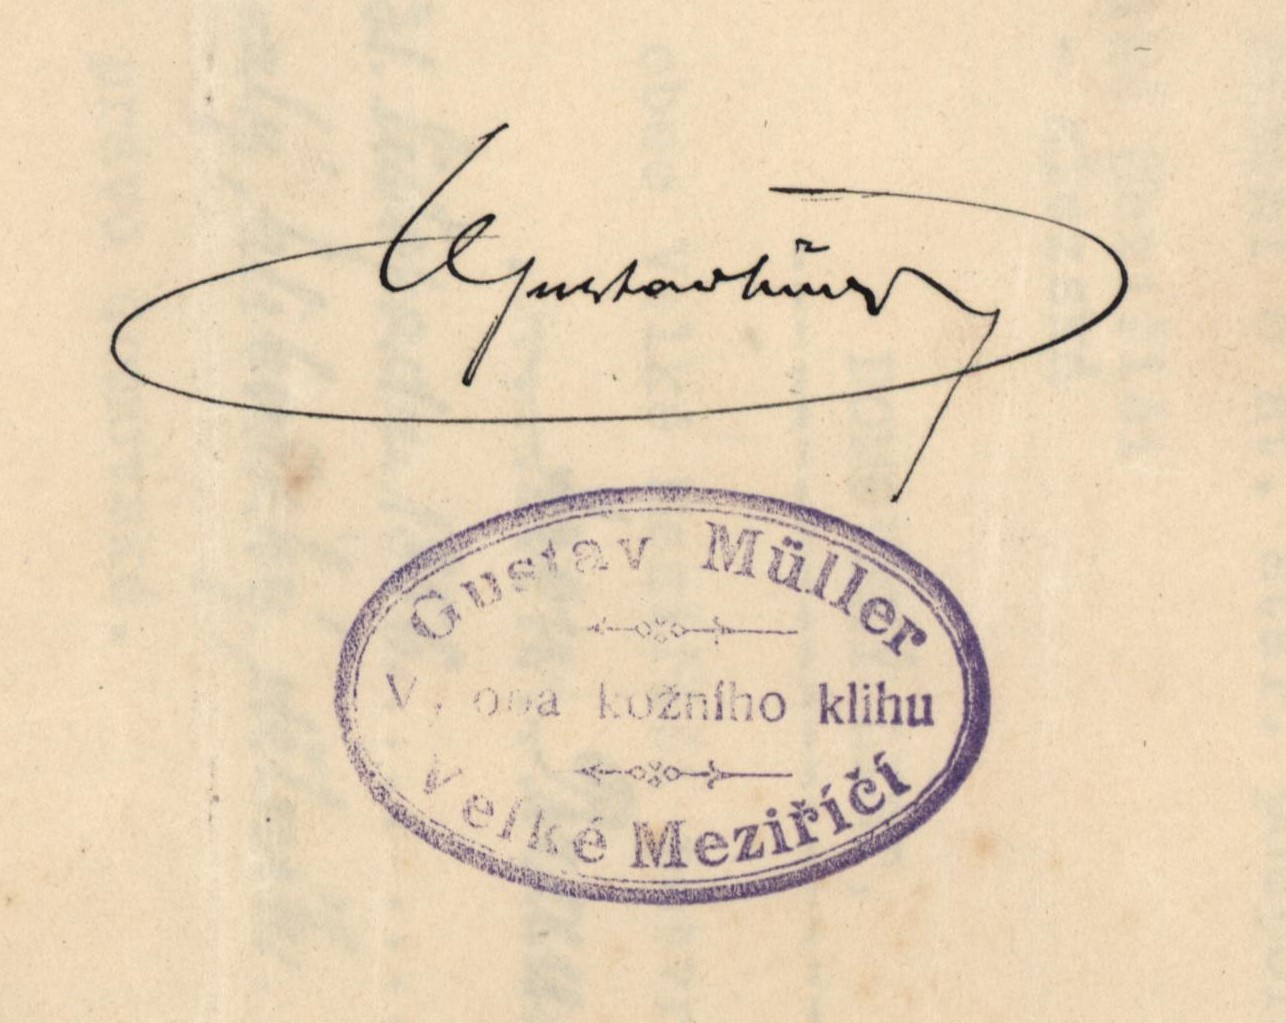 Gustav Müller
Gustav Müller
Výroba kožního klihu
Velké Meziříčí